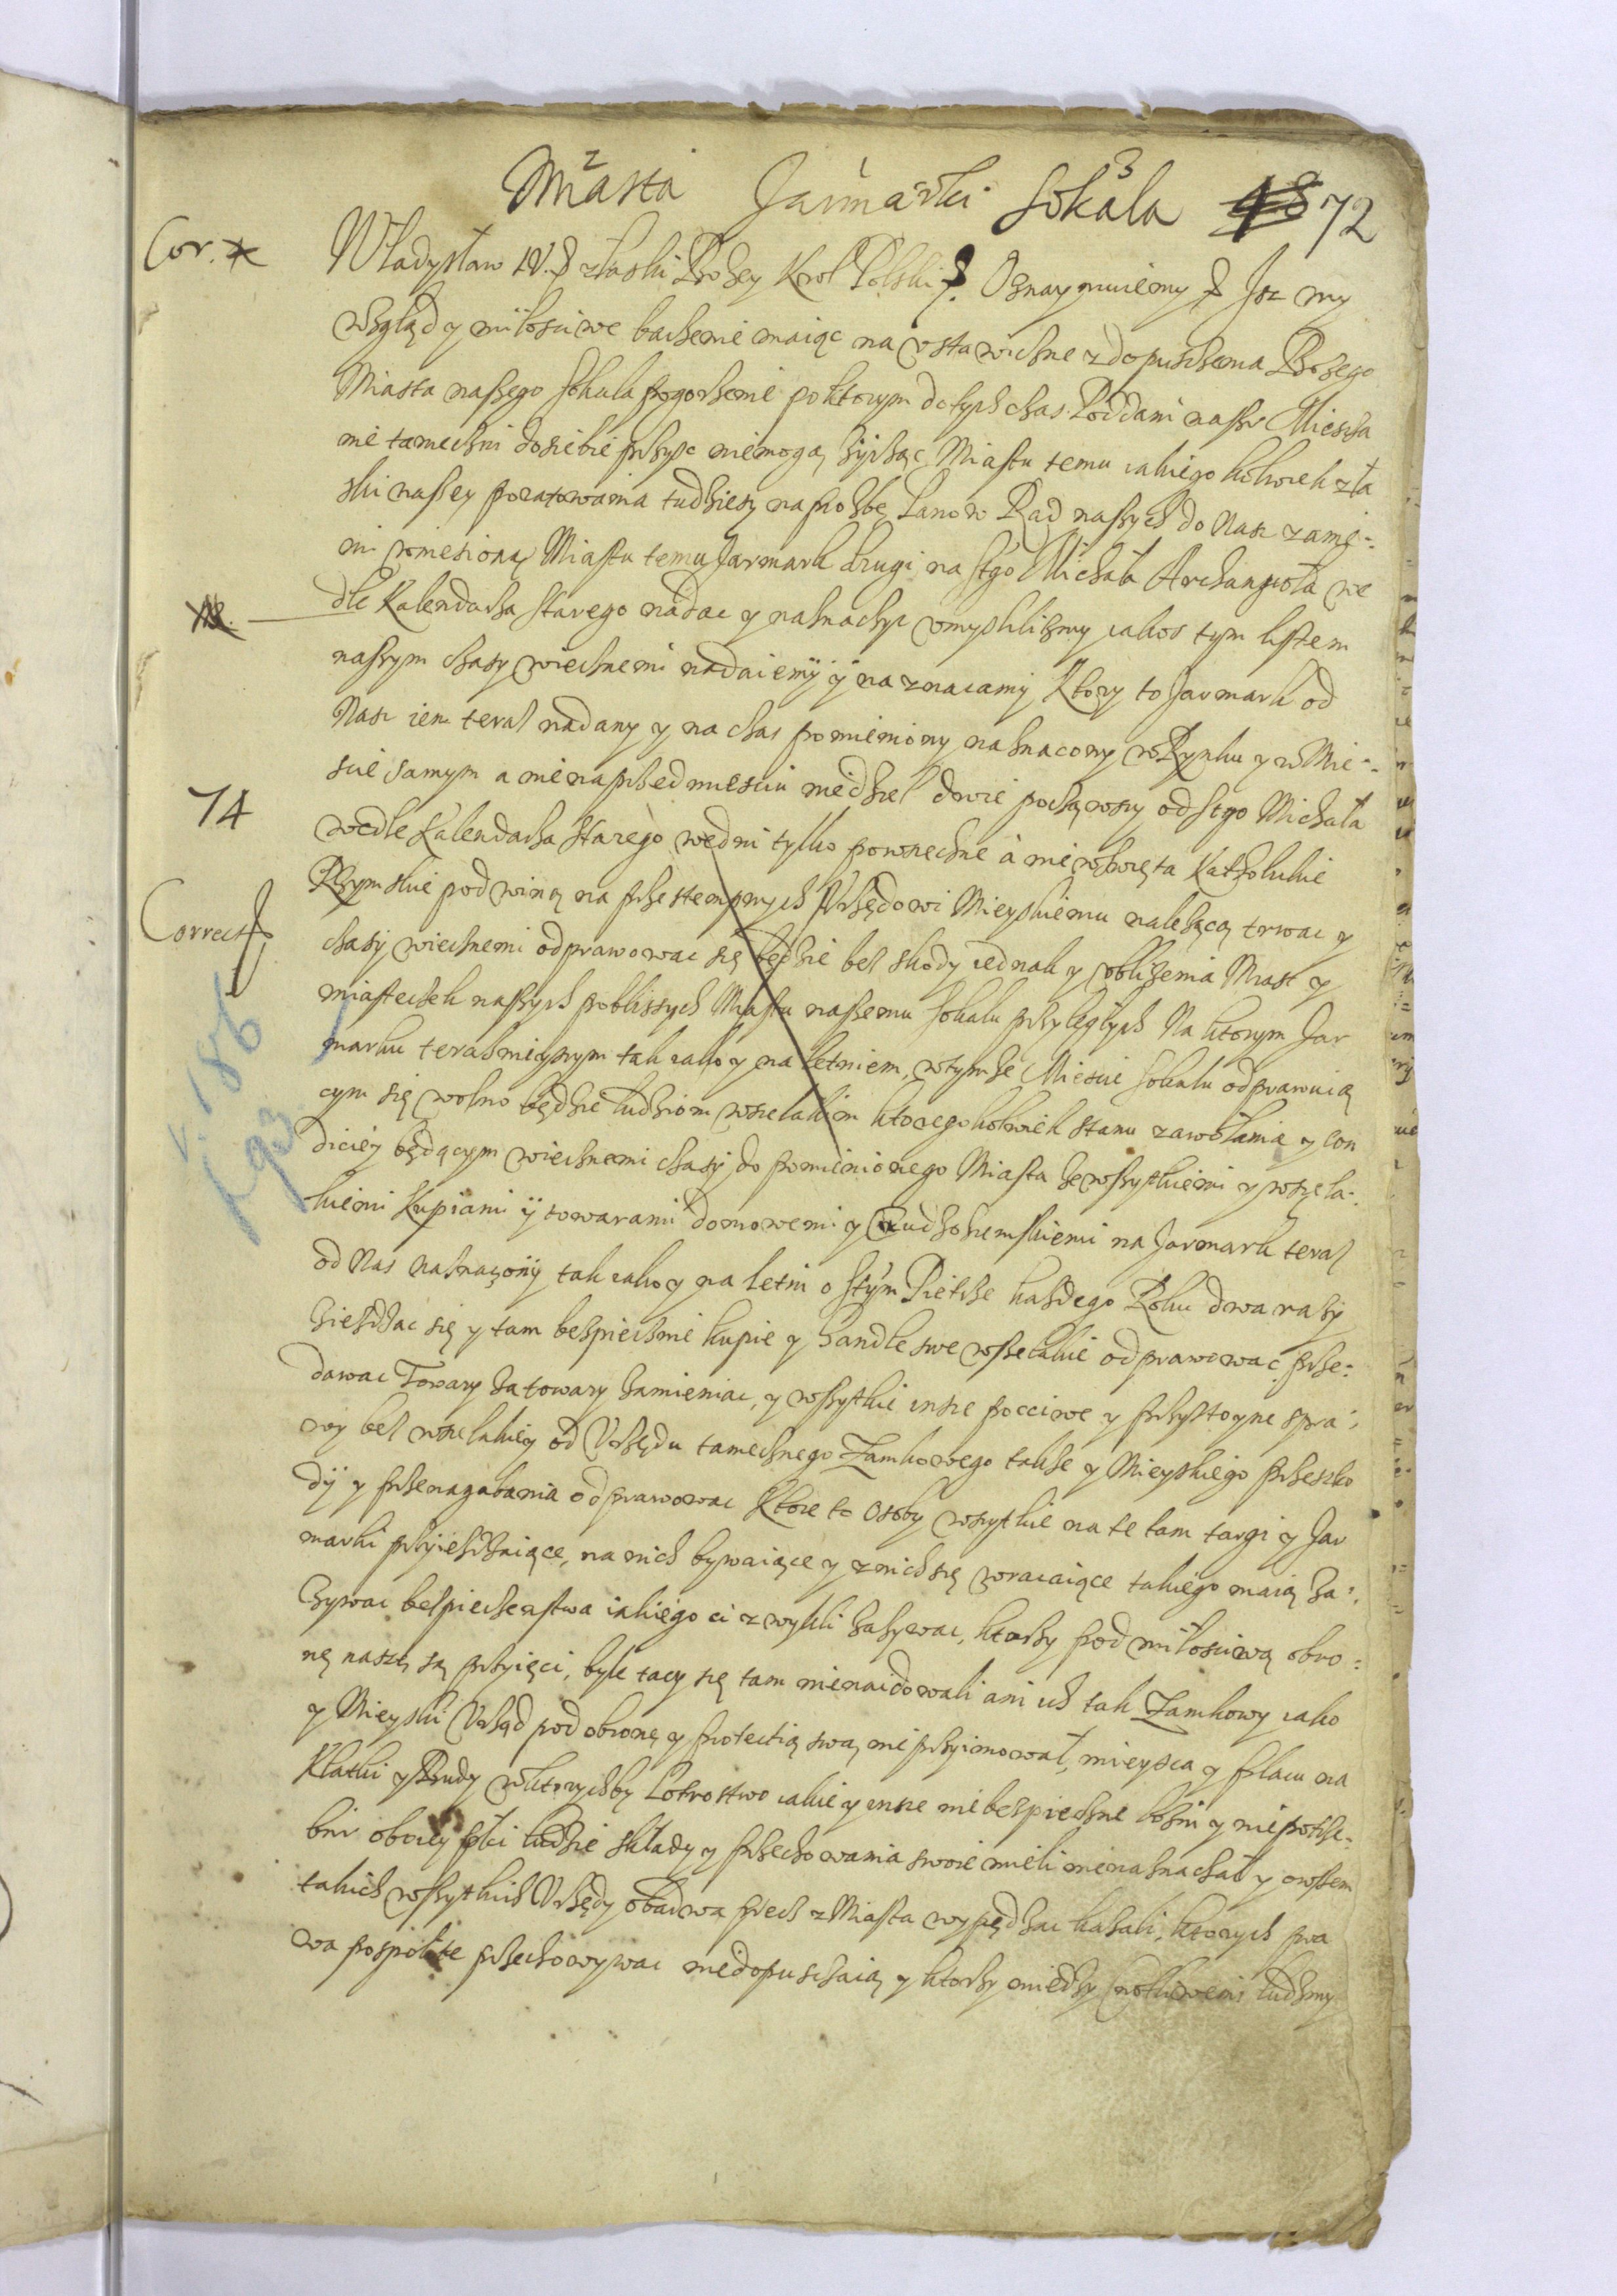 2 1 3
Miasta Jarmarki Sokala 48 72
Cor. *
Władysław IV. z łaski Bożey Krol Polski. Oznaymuiemy Isz my
wzgląd y miłosciwe baczenie maiąc na ustawiczne z dopusczenia Bozego
Miasta naszego Sokala pogorzenie po ktorym dotych czas Poddani naszy Miescza
nie tameczni do siebie przysc niemogą, zycząc Miastu temu iakiego kolwiek z ła
ski naszey poratowania tudziesz na prozbę Panow Rad naszych do Nas za nię-
mi wniesioną Miastu temu Jarmark drugi na Sgo Michała Archanyoła we
dle Kalendarza starego nadac y naznaczyc umyslilismy iakos tym listem
naszym czasy wiecznemi nadaiemy y naznacamy Ktory to Jarmark od
Nas iem teraz nadany y na czas pomieniony naznacony w Rynku y w Mie-
scie samym a nie na przedmiesciu niedziel dwie począwszy od Sgo Michała
74
wedle Kalendarza starego we dni tylko powszechne a nie w swięta Katholickie
Rzymskie pod winą na przestempnych Urzędowi Mieyskiemu nalezącą trwac y
Correct
czasy wiecznemi odprawowac się będzie bez skody iednak y ubliżenia Miast y
miasteczek naszych poblissych Miastu naszemu Sokalu przyległych Na ktorym Jar
marku terazniejszym tak iako y na letniem, w tymze Miescie Sokalu odprawuią
v. 186
cym się wolno będzie ludziom wszelakim ktoregokolwiek stanu zawołania y con
diciey będącym wiecznemi czasy do pomienionego Miasta ze wszytkiemi y wszela-
kiemi Kupiami y towarami domowemi y cudzoziemskiemi na Jarmark teraz
od Nas naznaczony tak iako y na letni o Stym Pietrze kazdego Roku dwa razy
ziezdzac się y tam bezpiecznie kupie y handle swe wszelakie odprawowac, prze-
dawac Towary za towary zamieniac, y wszytkie insze pocciwe y przystoyne spra-
wy bez wszelakiey od Urzędu tamecznego Zamkowego takze y Mieyskiego przeszko
dy y przenagabania odprawowac Ktore to Osoby wszytkie na te tam targi y Jar
marki przyiezdzaiące, na nich bywaiące y z nich się wracaiące takiego maią za-
zywac bezpieczenstwa iakiego ci zwykli zazywac, ktorzy pod miłosciwą obro-
nę naszę są przyięci, byle tacy się tam nienaidowali ani ich tak Zamkowy iako
y Mieyski Urząd pod obronę y protectią swą nie przyimował, mieysca y placu na
Klatki y Budy w ktorychby Łotrostwo iakie y insze niebezpieczne y niepotrze-
bne oboiey płci ludzie składy y przechowania swoie mieli nienaznaczał y owszem
takich wszytkich Urzędy obadwa precz z Miasta wypędzac kazali, ktorych pra
wa pospolite przechowywac niedopusczaią y ktorzy miedzy cnotliwemi ludzmy